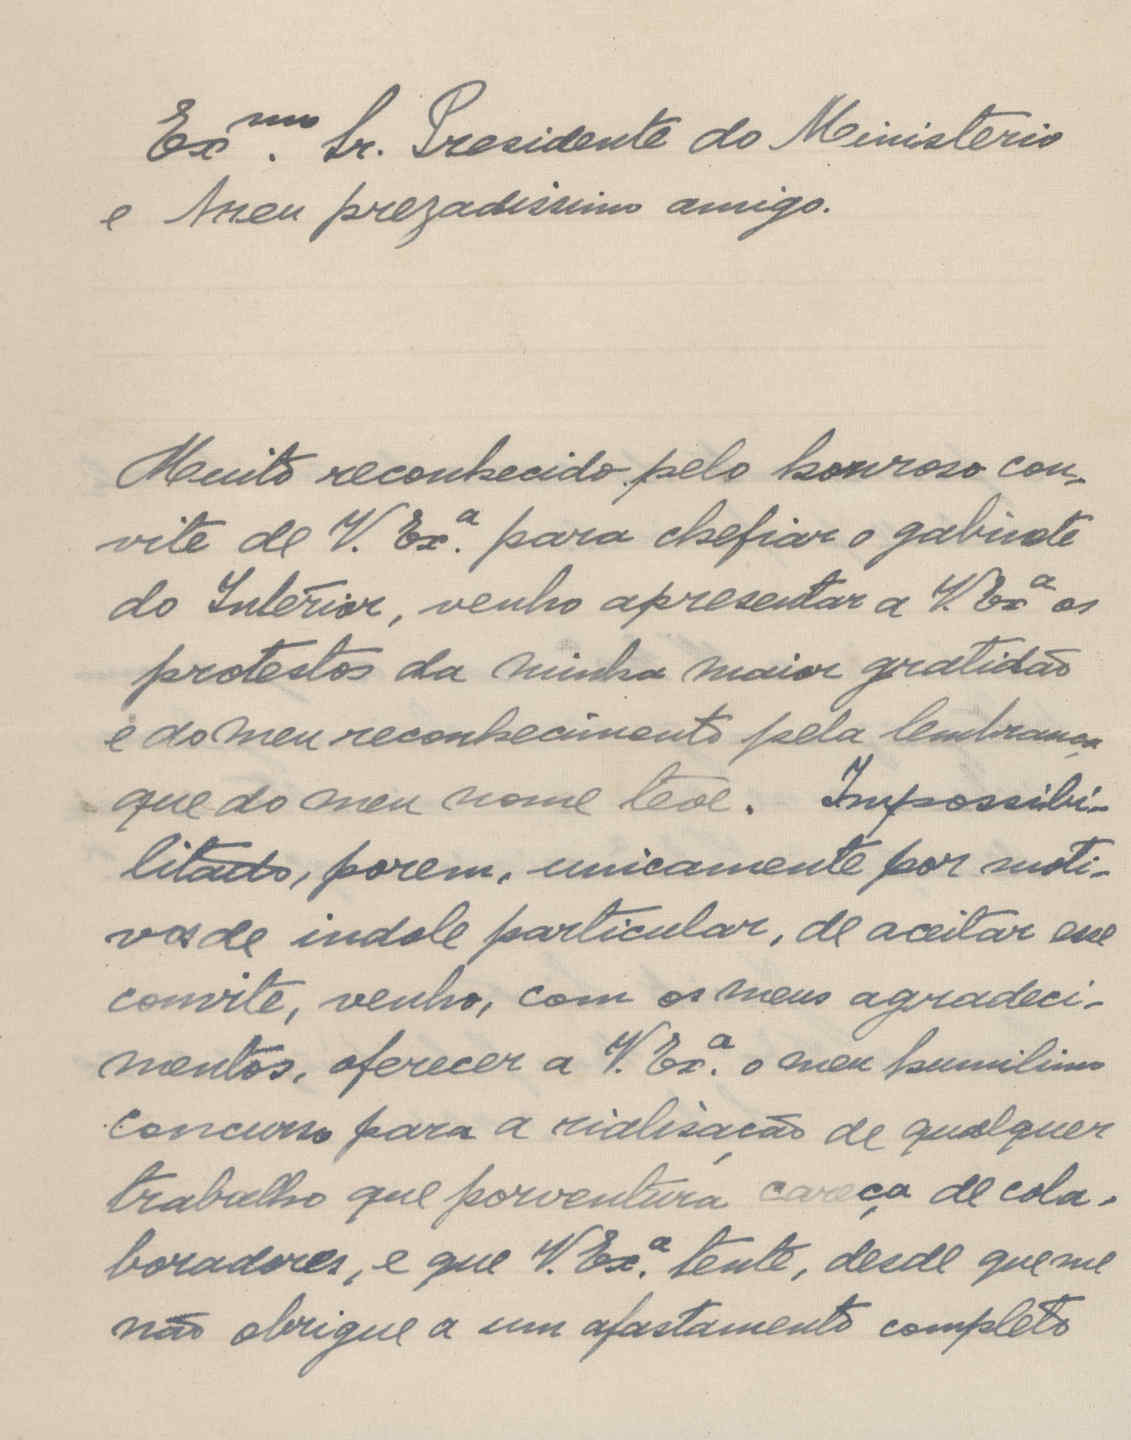 Exmo. Sr. Presidente do Ministerio
e Meu prezadissimo amigo.
Muito reconhecido pelo honroso con-
vite de V. Exª. para chefiar o gabinete
do Interior, venho apresentar a V. Exª os
protestos da minha maior gratidão
e do meu reconhecimento pela lembrança
que do meu nome teve. Impossibi-
litado, porem, unicamente por moti-
vos de indole particular, de aceitar esse
convite, venho, com os meus agradeci-
mentos, oferecer a V. Exª. o meu humilimo
concurso para a rialisação de qualquer
trabalho que porventura careça de cola-
boradores, e que V. Exª. tente, desde que me
não obrigue a um afastamento completo